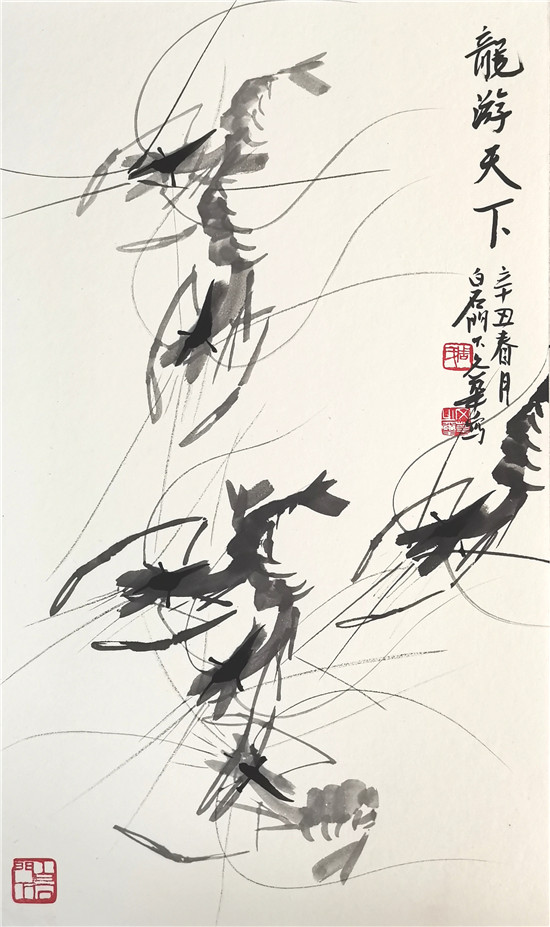 龍游天下
辛丑春月
白石門下文華寫